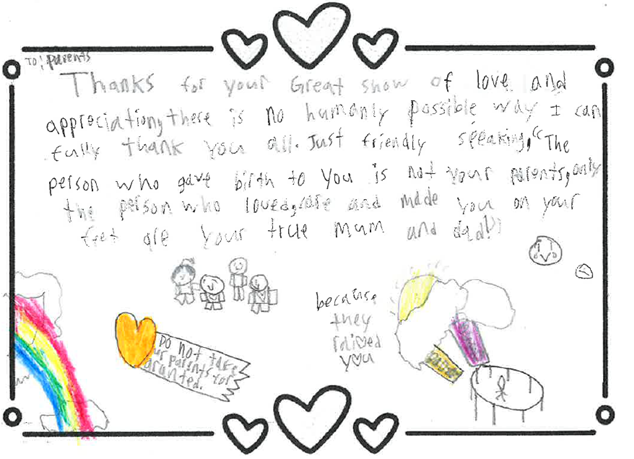 To: parents
Thanks for your Great show of love and
appreciation, there is no humanly possible way I can
fully thank you all. Just friendly speaking, "The
person who gave birth to you is not your parents, only
the person who loved, and made you on your
feet are your true mum and dad!"
because
they
raised
you
Do not take
our parents for
granted.